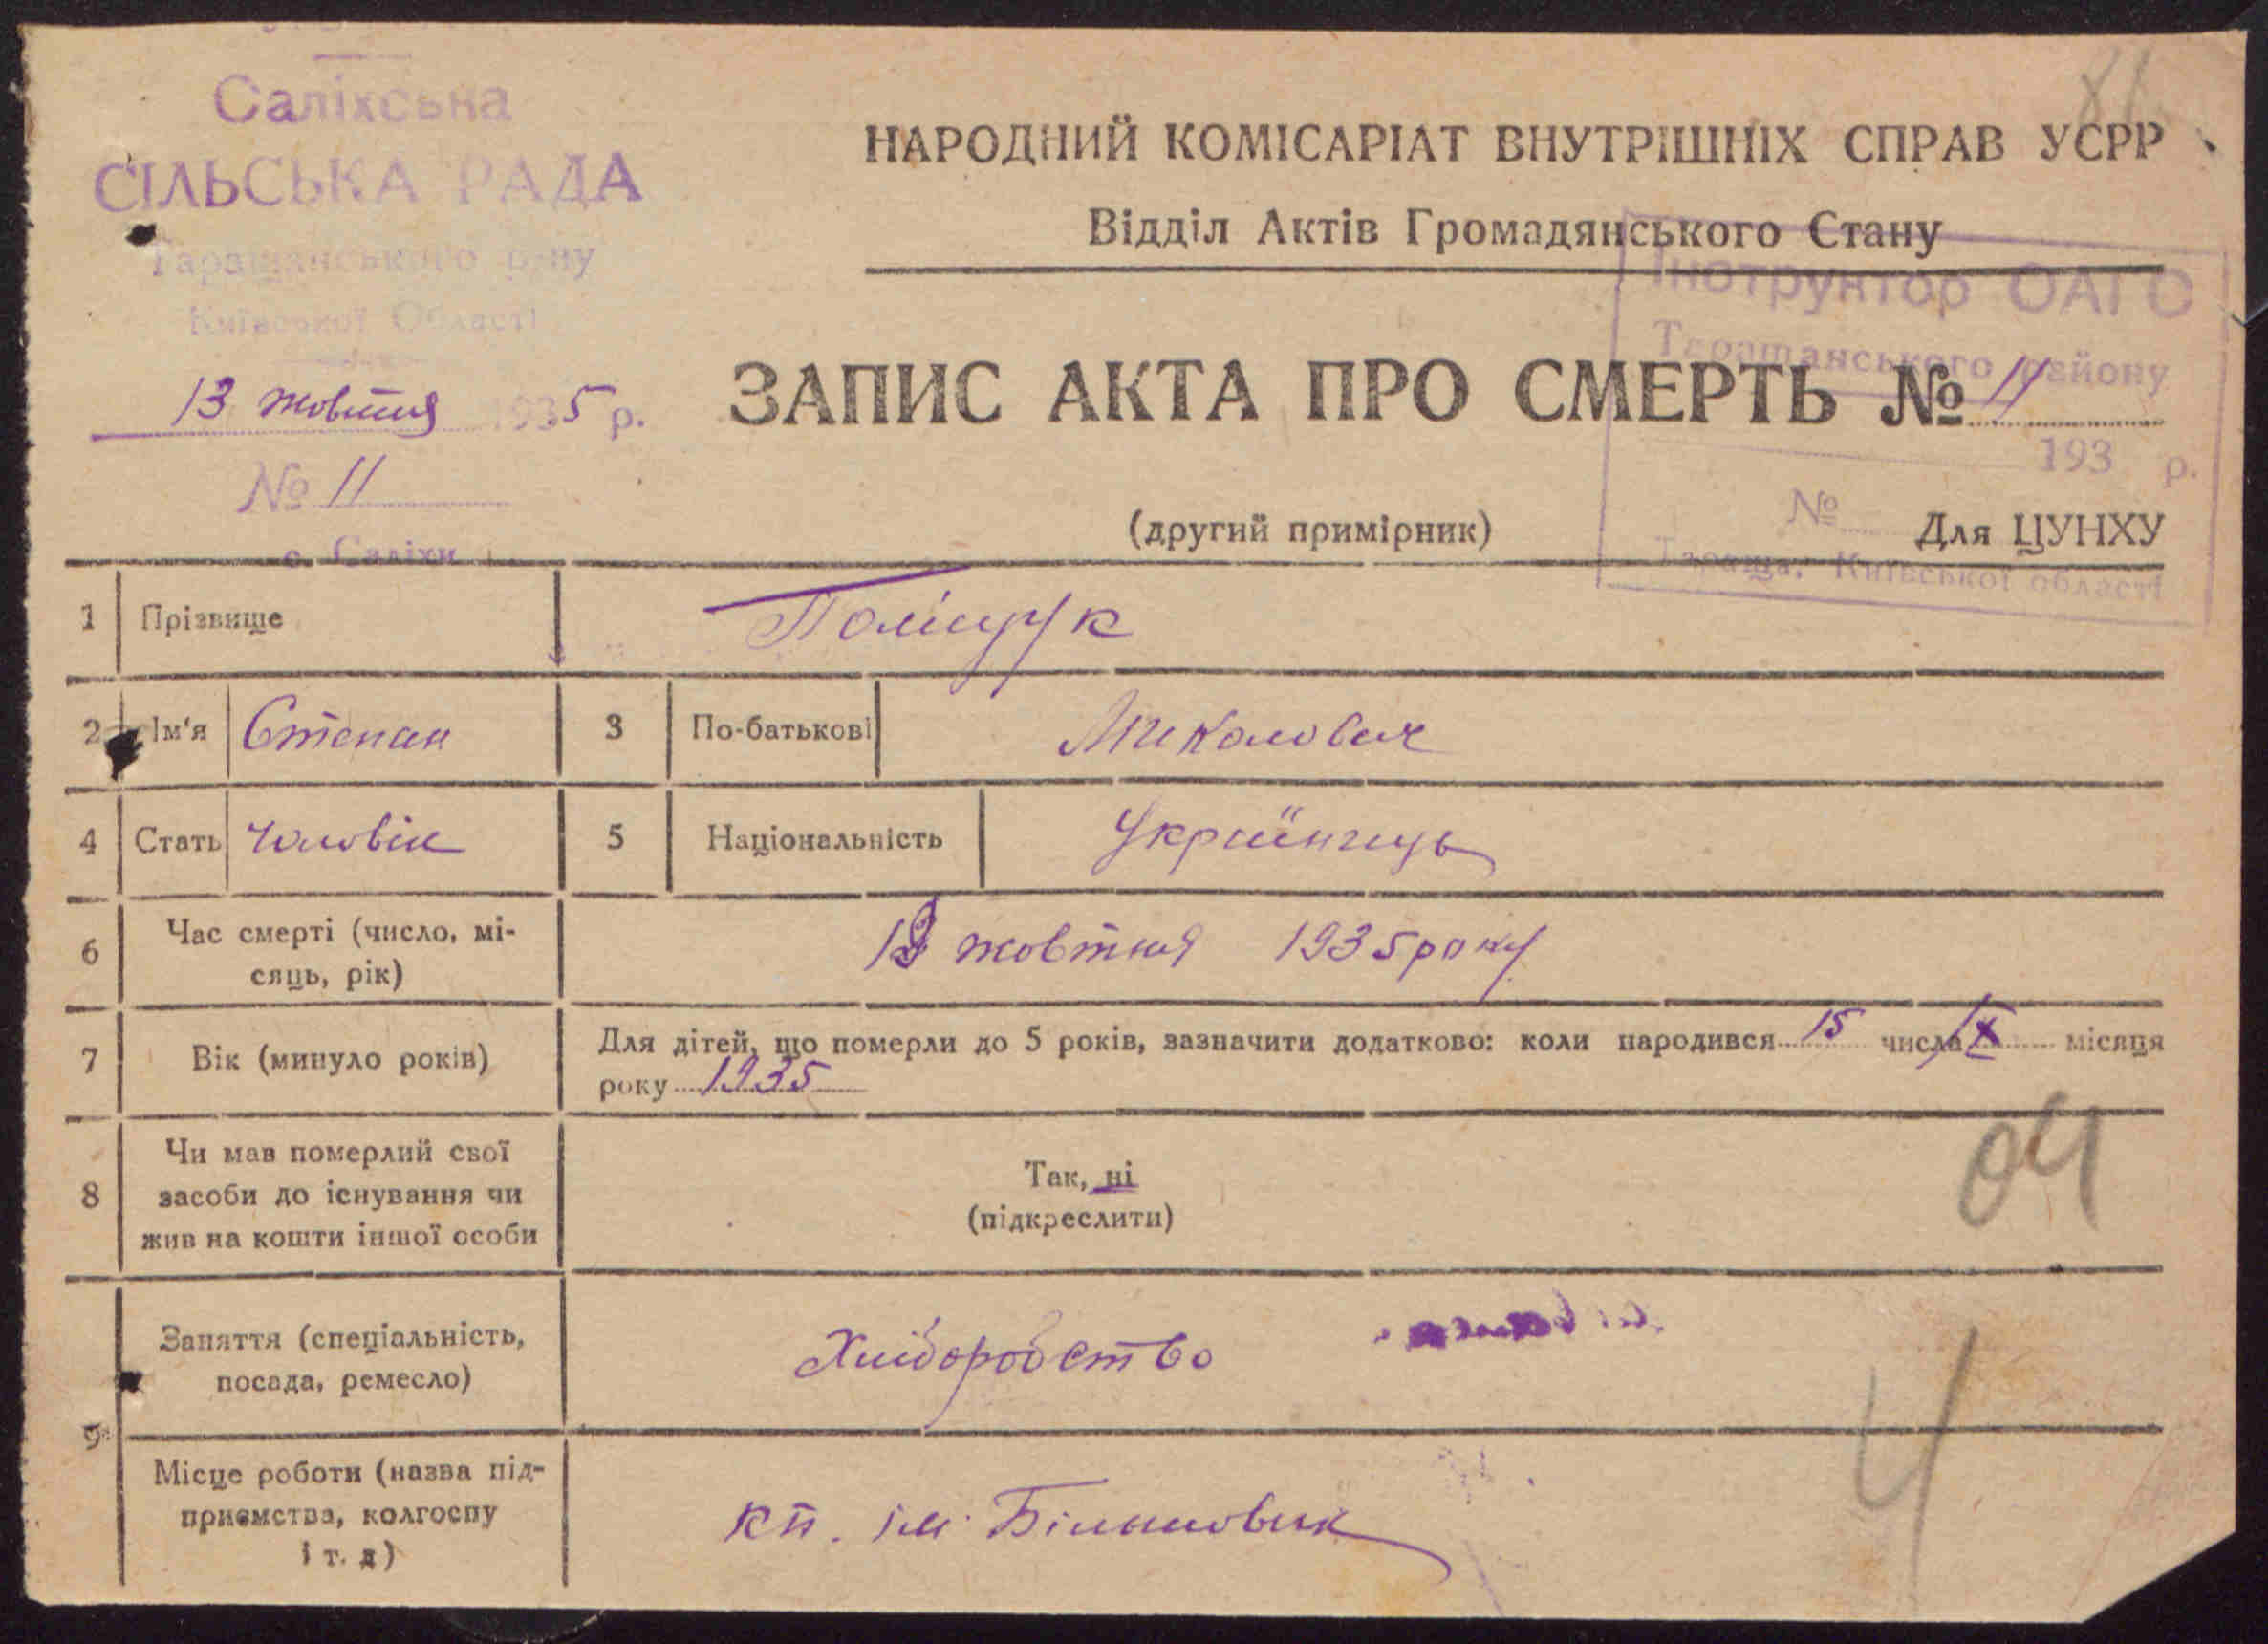 Саліхська
СІЛЬСЬКА РАДА
Таращанського р-ну
Київської Області
13 жовтня 1935 р.
№ 11
с. Саліхи
81
НАРОДНИЙ КОМІСАРІАТ ВНУТРІШНІХ СПРАВ УСРР
Відділ Актів Громадянського Стану
Інструктор ОАГС
Таращанського району
193 р.
№
Тараща, Київської області
ЗАПИС АКТА ПРО СМЕРТЬ № 11
(другий примірник)
Для ЦУНХУ
1 Прізвище Поліщук
2 Ім'я Степан 3 По-батькові Миколович
4 Стать чоловік 5 Національність Українець
6 Час смерті (число, мі-
сяць, рік)
жовтня 1935 року
7 Вік (минуло років) Для дітей, що померли до 5 років, зазначити додатково: коли народився 15 числа ІХ місяця
року 1935
8 Чи мав померлий свої
засоби до існування чи
жив на кошти іншої особи
Так, ні
(підкреслити)
04
9
Заняття (спеціальність,
посада, ремесло)
Хліборобство
4
Місце роботи (назва під-
приємства, колгоспу
і т. д)
кп. ім. Більшовик